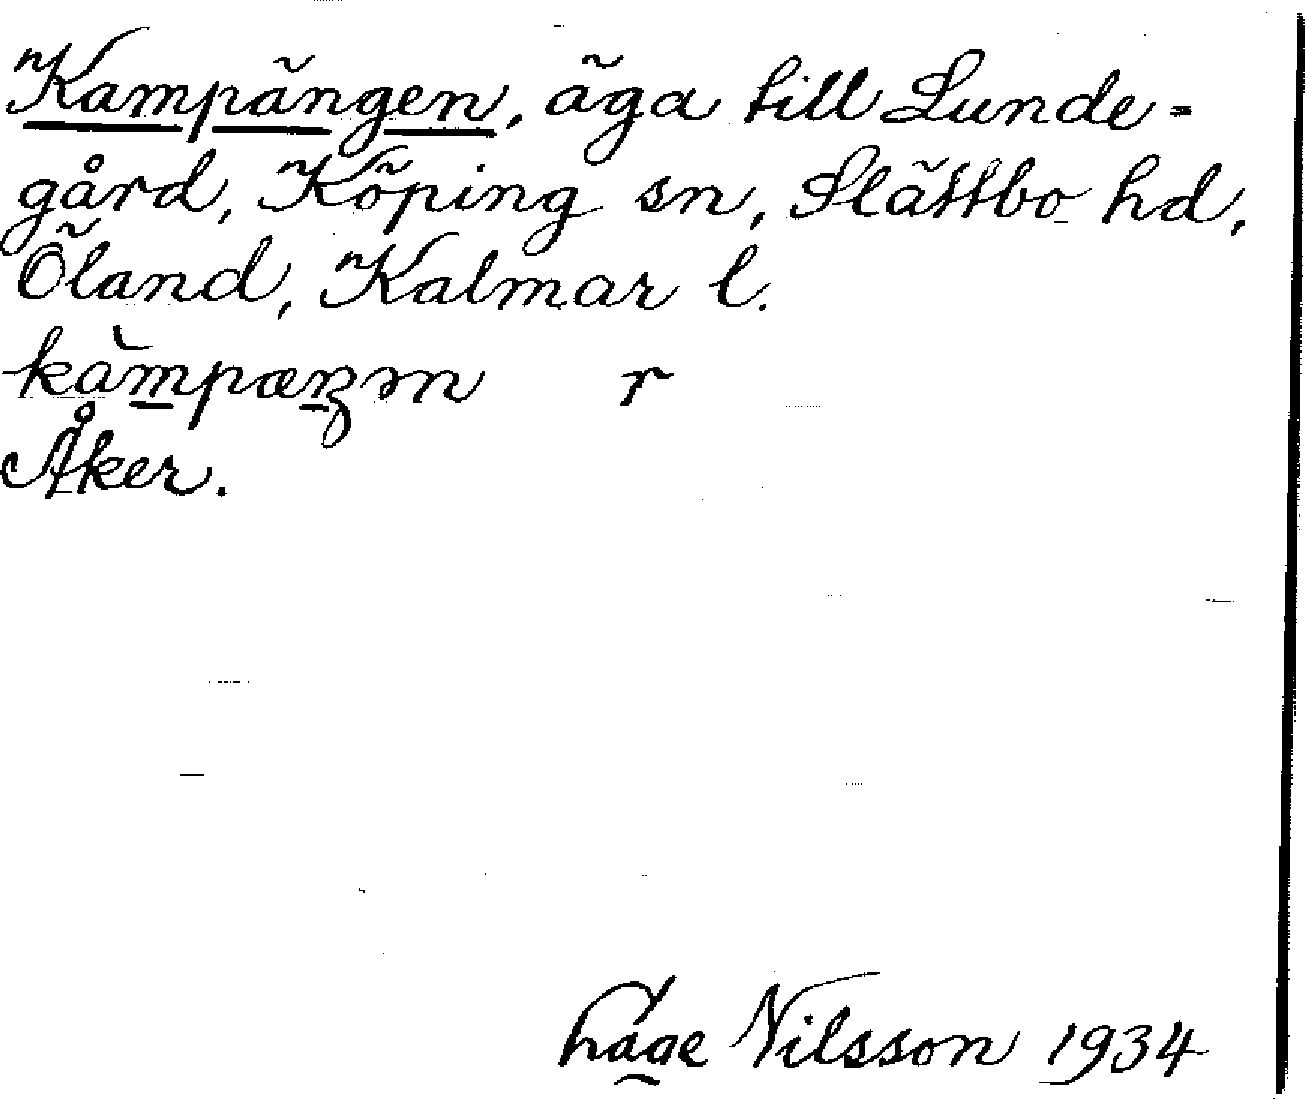 Kampängen, äga till Lunde-
gård, Köping sn, Slättbo hd,
Öland, Kalmar l.
r
Åker.
Nilsson 1934